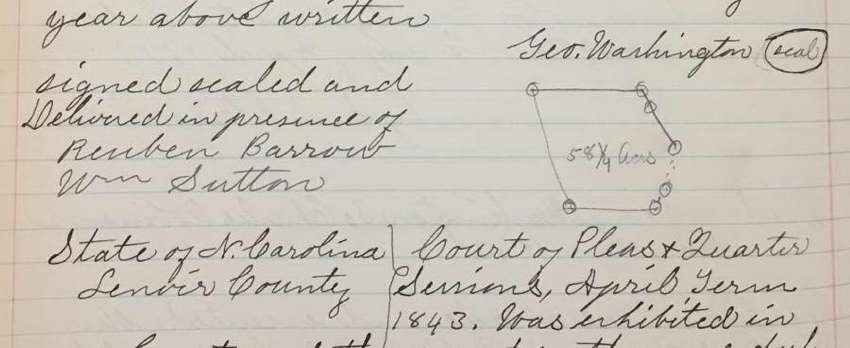 year above written
Geo. Washington (seal)
signed sealed and
Delivered in presence of
Reuben Barrow
Wm Sutton
58¼ Acrs
State of N. Carolina
Lenoir County
Court of Pleas & Quarter
Sessions, April Term
1843. Was exhibited in